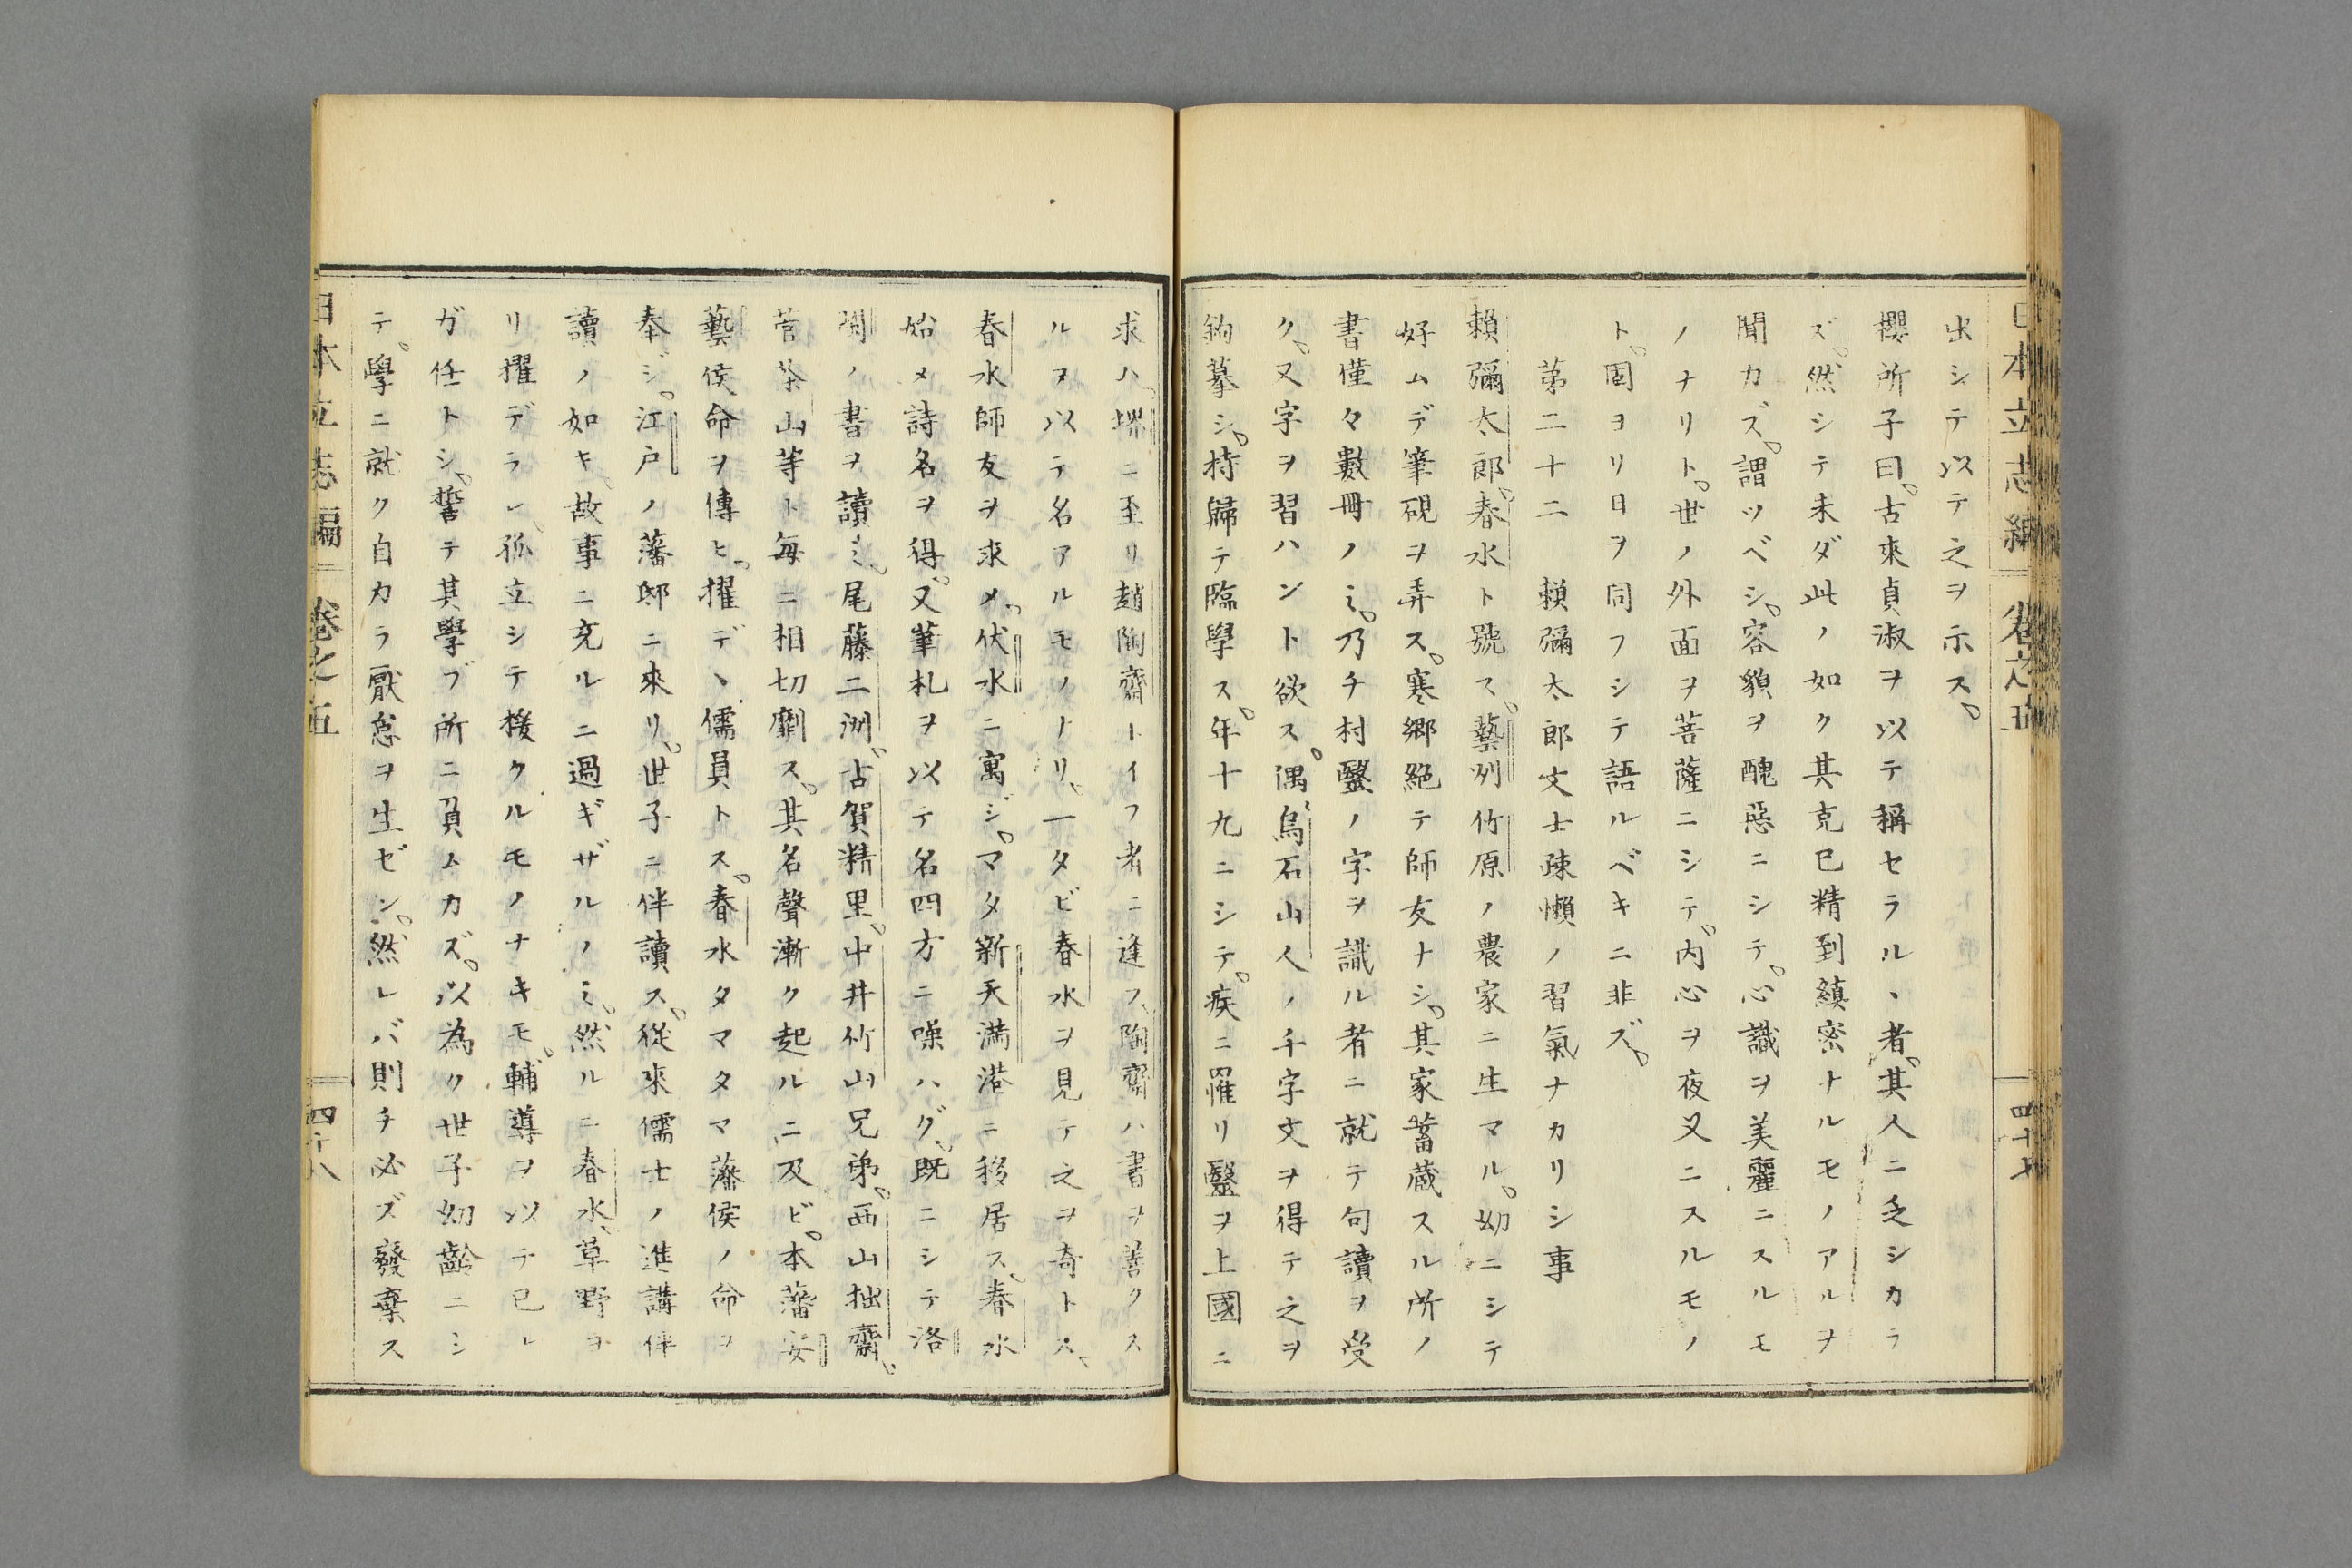 日本立志編 卷之五 四十七
出シテ以テ之ヲ示ス。
櫻所子曰。古來貞淑ヲ以テ稱セラルヽ者。其人ニ乏シカラ
ズ。然シテ未ダ此ノ如ク其克己精到縝密ナルモノアルヲ
聞カズ。謂ツベシ。容貌ヲ醜惡ニシテ。心識ヲ美麗ニスルモ
ノナリト。世ノ外面ヲ菩薩ニシテ。内心ヲ夜叉ニスルモノ
ト。固ヨリ日ヲ同フシテ語ルベキニ非ズ。
第二十二 賴彌太郎文士疎懶ノ習氣ナカリシ事
賴彌太郎。春水ト號ス。藝州竹原ノ農家ニ生マル。幼ニシテ
好ムデ筆硯ヲ弄ス。寒郷絶テ師友ナシ。其家蓄蔵スル所ノ
書僅々數冊ノミ。乃チ村毉ノ字ヲ識ル者ニ就テ句讀ヲ受
ク。又字ヲ習ハント欲ス。偶烏石山人ノ千字文ヲ得テ之ヲ
鉤摹シ。持歸テ臨學ス。年十九ニシテ。疾ニ罹リ毉ヲ上國ニ
求ハ。堺ニ至リ趙陶齋トイフ者ニ逢フ。陶齋ハ書ヲ善クス
ルヲ以テ名アルモノナリ。一タビ春水ヲ見テ之ヲ奇トス。
春水師友ヲ求メ。伏水ニ寓ジ。マタ新天満港ニ移居ス。春水
始メ詩名ヲ得。又筆札ヲ以テ名四方ニ噪ハグ。既ニシテ洛
閩ノ書ヲ讀ミ。尾藤二洲。古賀精里。中井竹山兄弟。西山拙齋。
菅茶山等ト毎ニ相切劘ス。其名聲漸ク起ルニ及ビ。本藩安
藝侯命ヲ傳ヒ。擢デヽ儒員トス。春水タマタマ藩侯ノ命ヲ
奉ジ。江戸ノ藩邸ニ來リ。世子ニ伴讀ス。從來儒士ノ進講伴
讀ノ如キ。故事ニ充ルニ過ギザルノミ。然ルニ春水。草野ヨ
リ擢デラレ。孤立シテ援クルモノナキモ。輔導ヲ以テ已レ
ガ任トシ。誓テ其學ブ所ニ負ムカズ。以為ク世子幼齡ニシ
テ。學ニ就ク自カラ厭怠ヲ生ゼン。然レバ則チ必ズ廢棄ス
日本立志編 卷之五 四十八